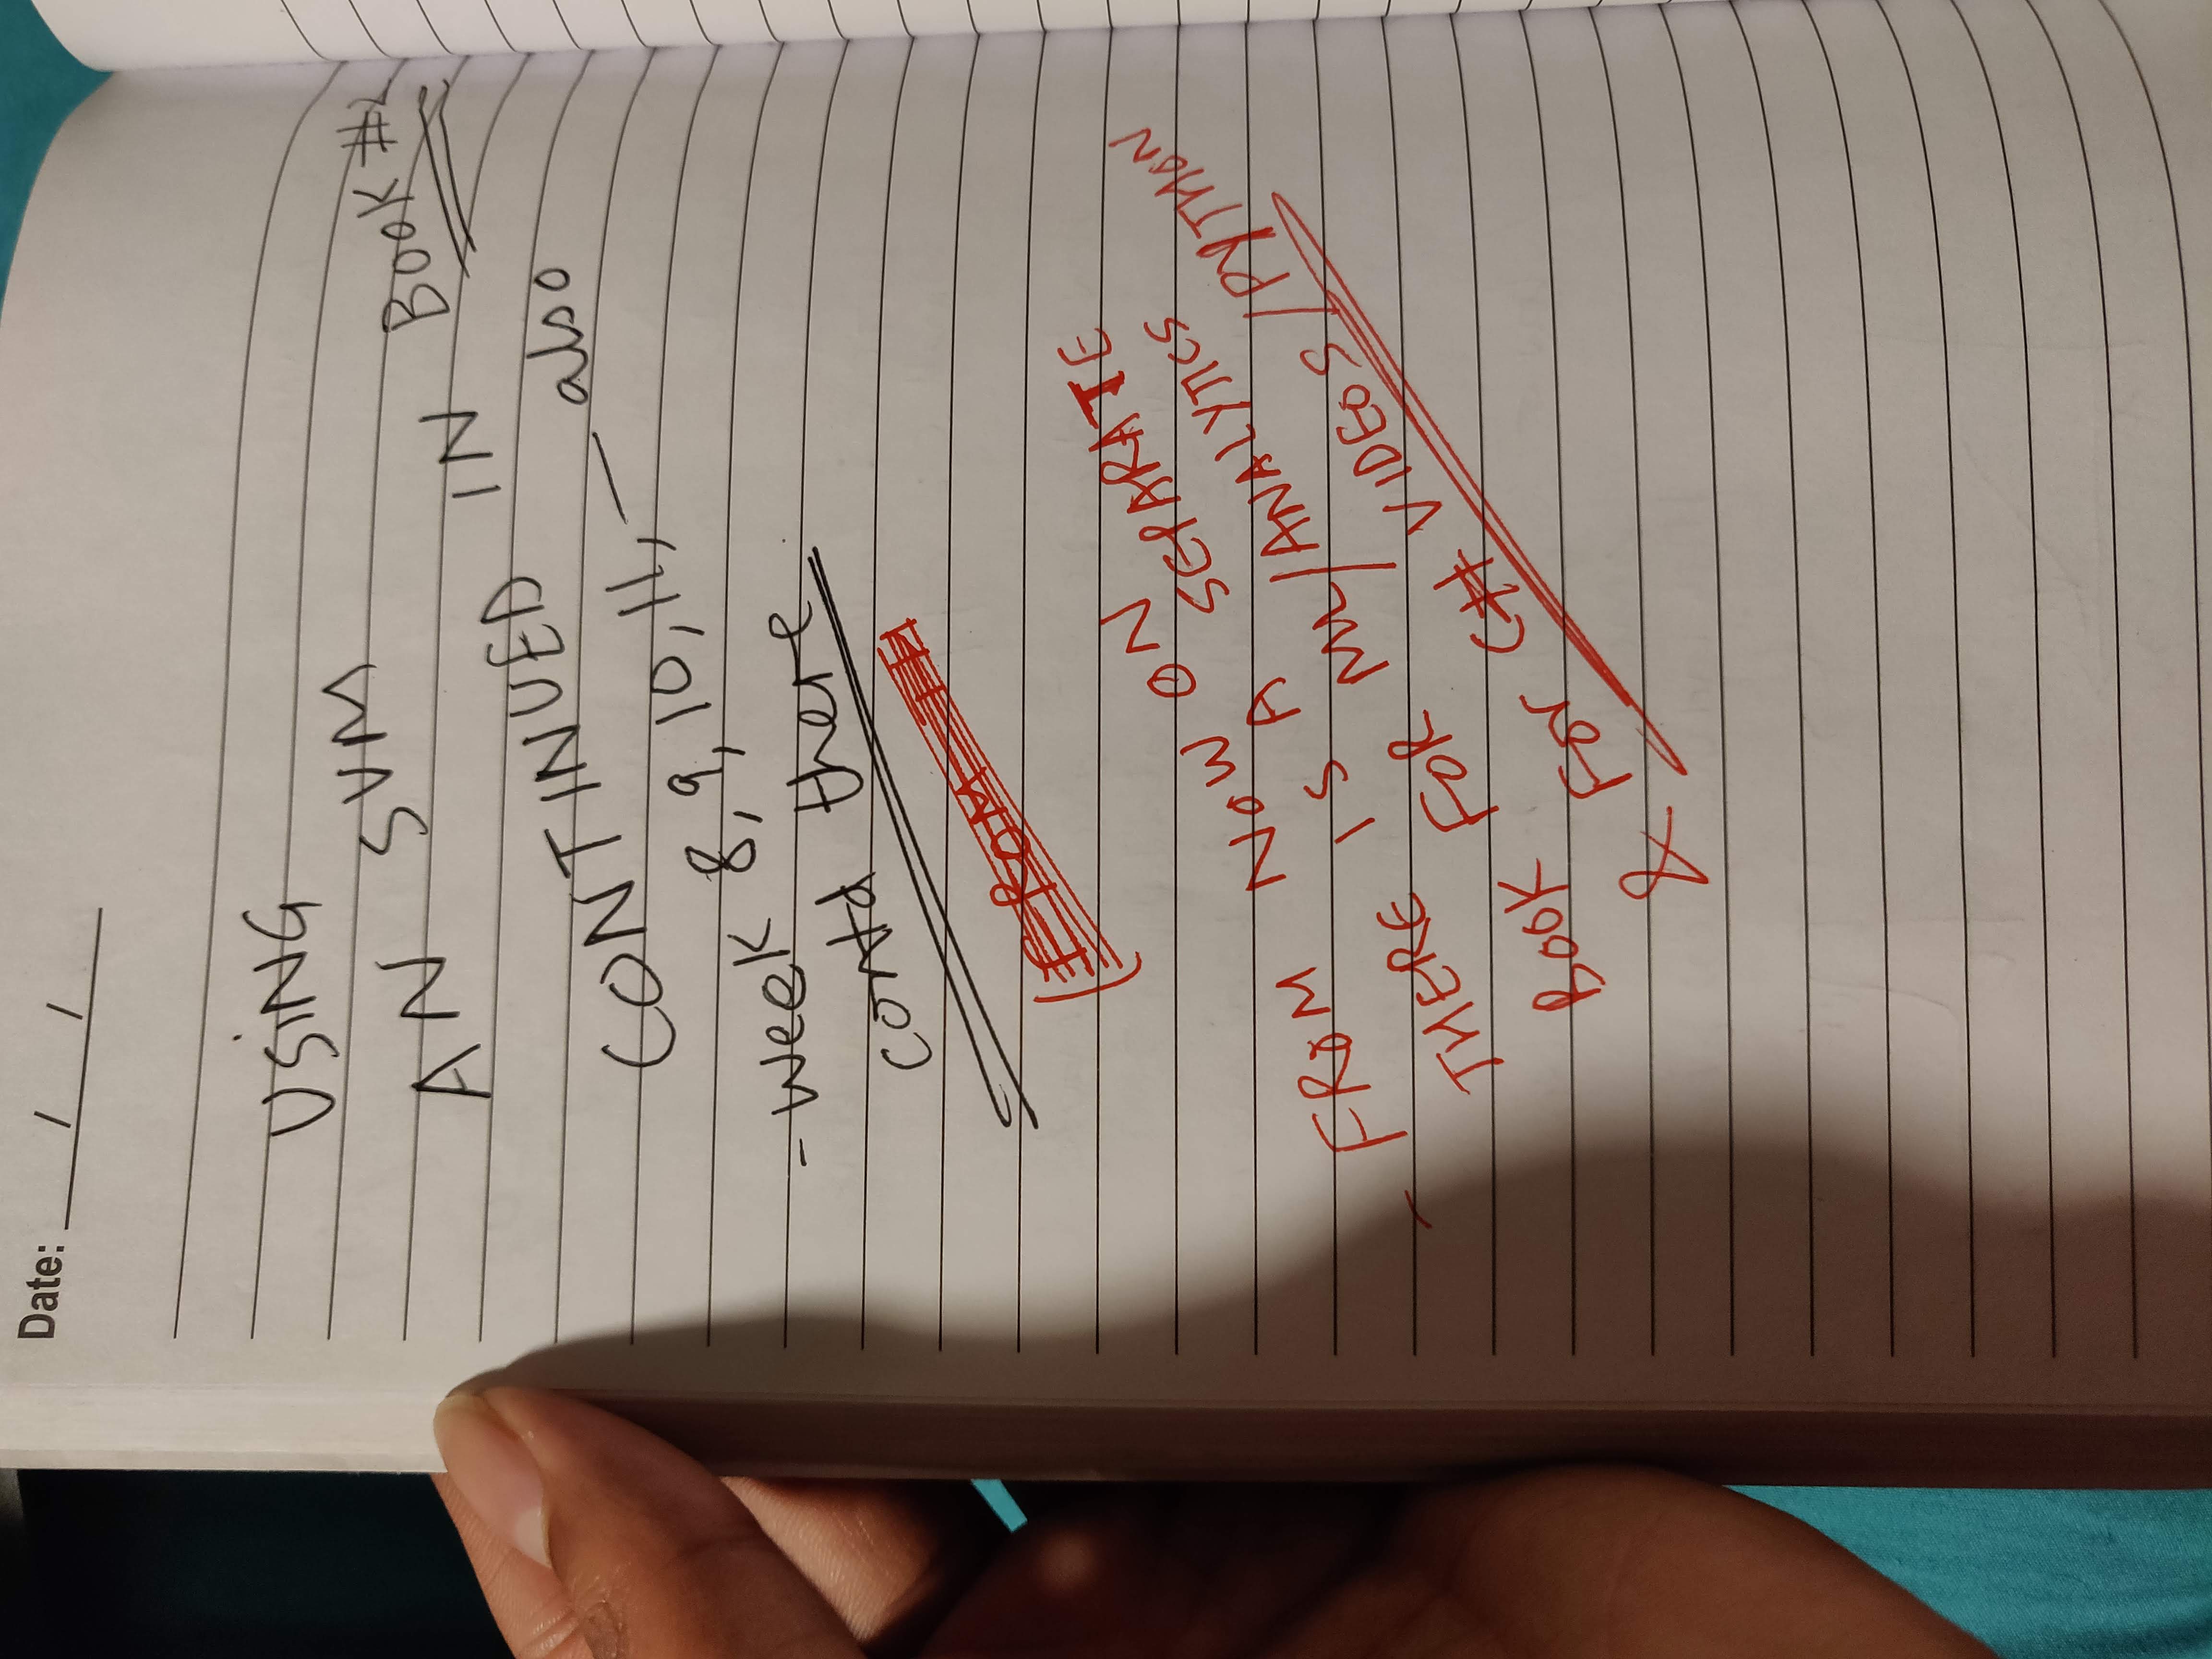 Date: / /
USiNG
AN SVM
CONTINUED IN BOOK #2
- Week 8, 9, 10, 11, — also
contd there
(FROM
- FROM NOW ON
THERE IS A SEPARATE
BOOK FOR ML/ANALYTICS
& For C# VIDEOS/PYTHON